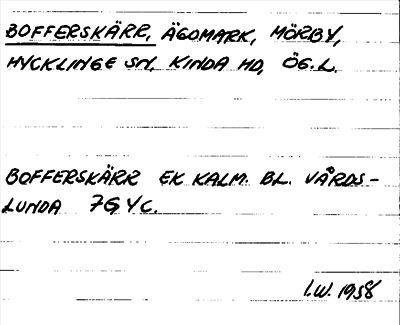 BOFFERSKÄRR, ÄGOMARK, MÖRBY,
HYCKLINGE SN, KINDA HD, ÖG.L.
BOFFERSKÄRR EK KALM. BL. VÅRDS-
LUNDA 7G Y C.
I.W. 1958